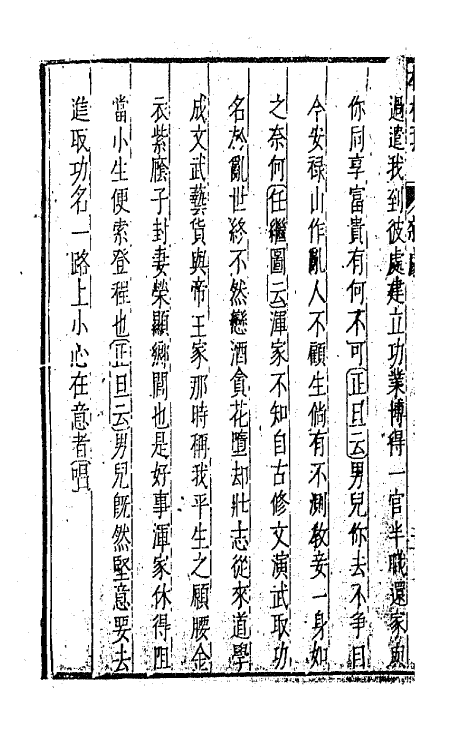 過遣我到彼處建立功業博得一官半職還家與
你同享富貴有何不可正旦云男兒你去不爭目
今安禄山作亂人不顧生倘有不測教妾一身如
之奈何任繼圖云渾家不知自古修文演武取功
名於亂世終不然戀酒貪花墮却壯志從來道學
成文武藝貨與帝王家那時稱我平生之願腰金
衣紫廕子封妻榮顯鄉閭也是好事渾家休得阻
當小生便索登程也正旦云男兒既然堅意要去
進取功名一路上小心在意者唱